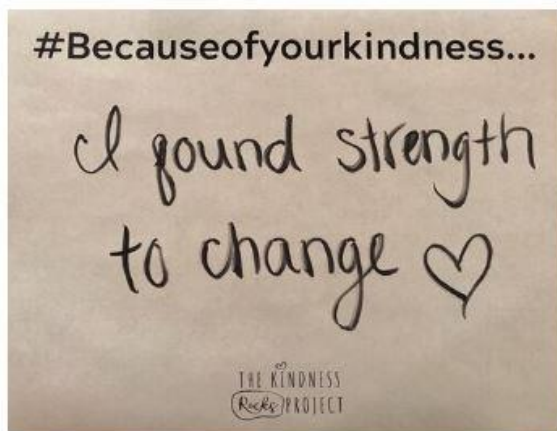 #Becauseofyourkindness...
I found strength
to change ♡
THE KINDNESS
Rocks PROJECT